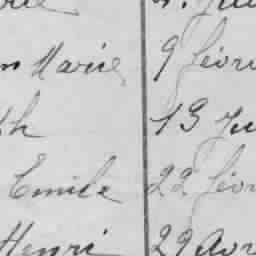 n Marie 9 févri
th 13 Ju
Emile 22 févr
Henri 29 avr